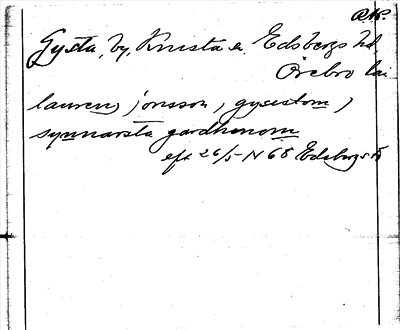 Gysta, by, Knista sn. Edsbergs hd,
Örebro län
laurens jonsson, gysestom,
synnarsta gardhenom
eft 26/5 1468 Edsbergs